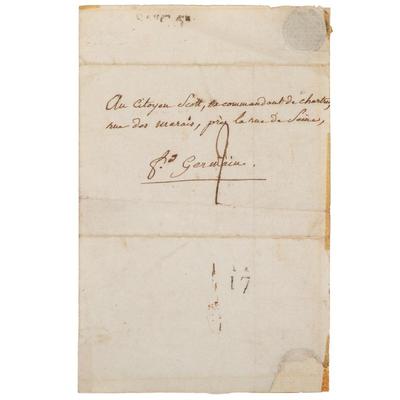 Au Citoyen Scott, commandant de chartres,
rue des marais, près la rue de Seine,
f.g Germain.
2
17